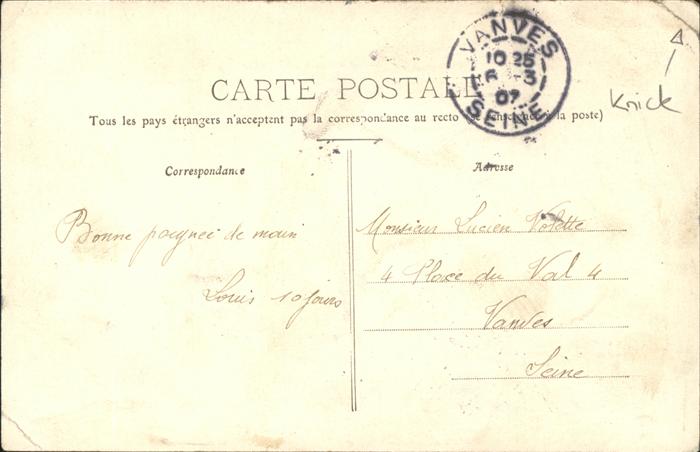 VANVES
10 25
6 -3
07
SEINE
Knick
CARTE POSTALE
Tous les pays étrangers n'acceptent pas la correspondance au recto (se renseigner à la poste)
Correspondance
Adresse
Bonne poignée de main
Louis 10 jours
Monsieur Lucien Volette
4 Place du Val 4
Vanves
Seine